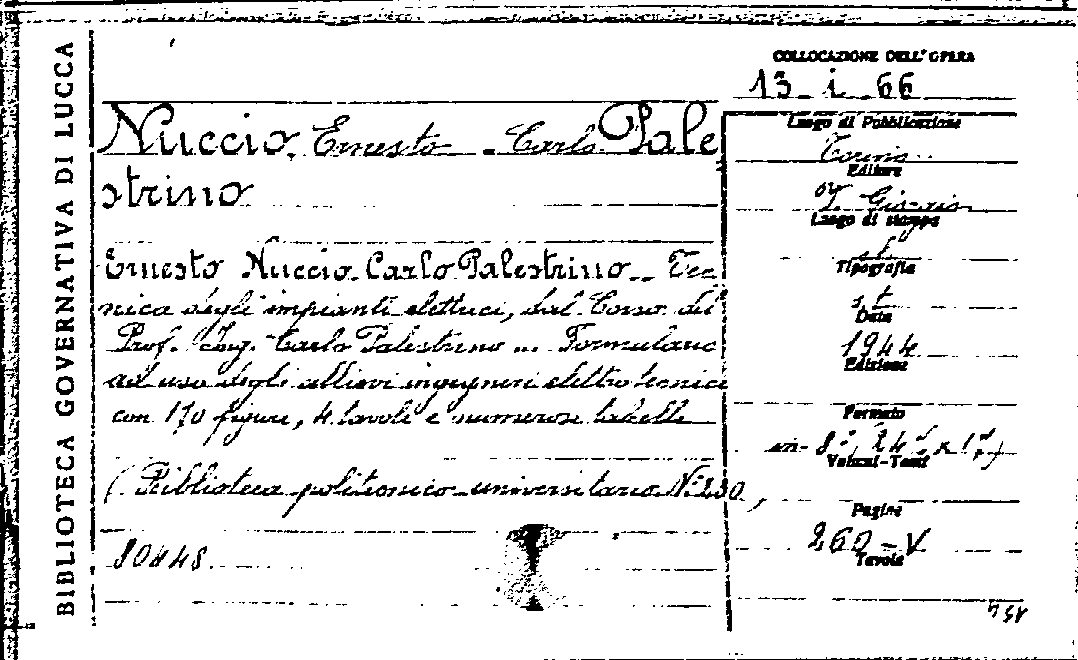 BIBLIOTECA GOVERNATIVA DI LUCCA
Nuccio Ernesto - Carlo Pale
strino
Ernesto Nuccio - Carlo Palestrino - Tec
nica degli impianti elettrici, dal Corso del
Prof. Ing. Carlo Palestrino ... Formulario
ad uso degli allievi ingegneri elettrotecnici
con 170 figure, 4 tavole e numerose tabelle
(Biblioteca politecnico universitaria N. 230
80448
COLLOCAZIONE DELL'OPERA
13 - i - 66
Luogo di Pubblicazione
Torino
Editore
Luogo di stampa
Tipografia
s. t.
Data
1944
Edizione
Formato
in-8°, 24
Volumi-Tomi
Pagine
260 - V
Tavole